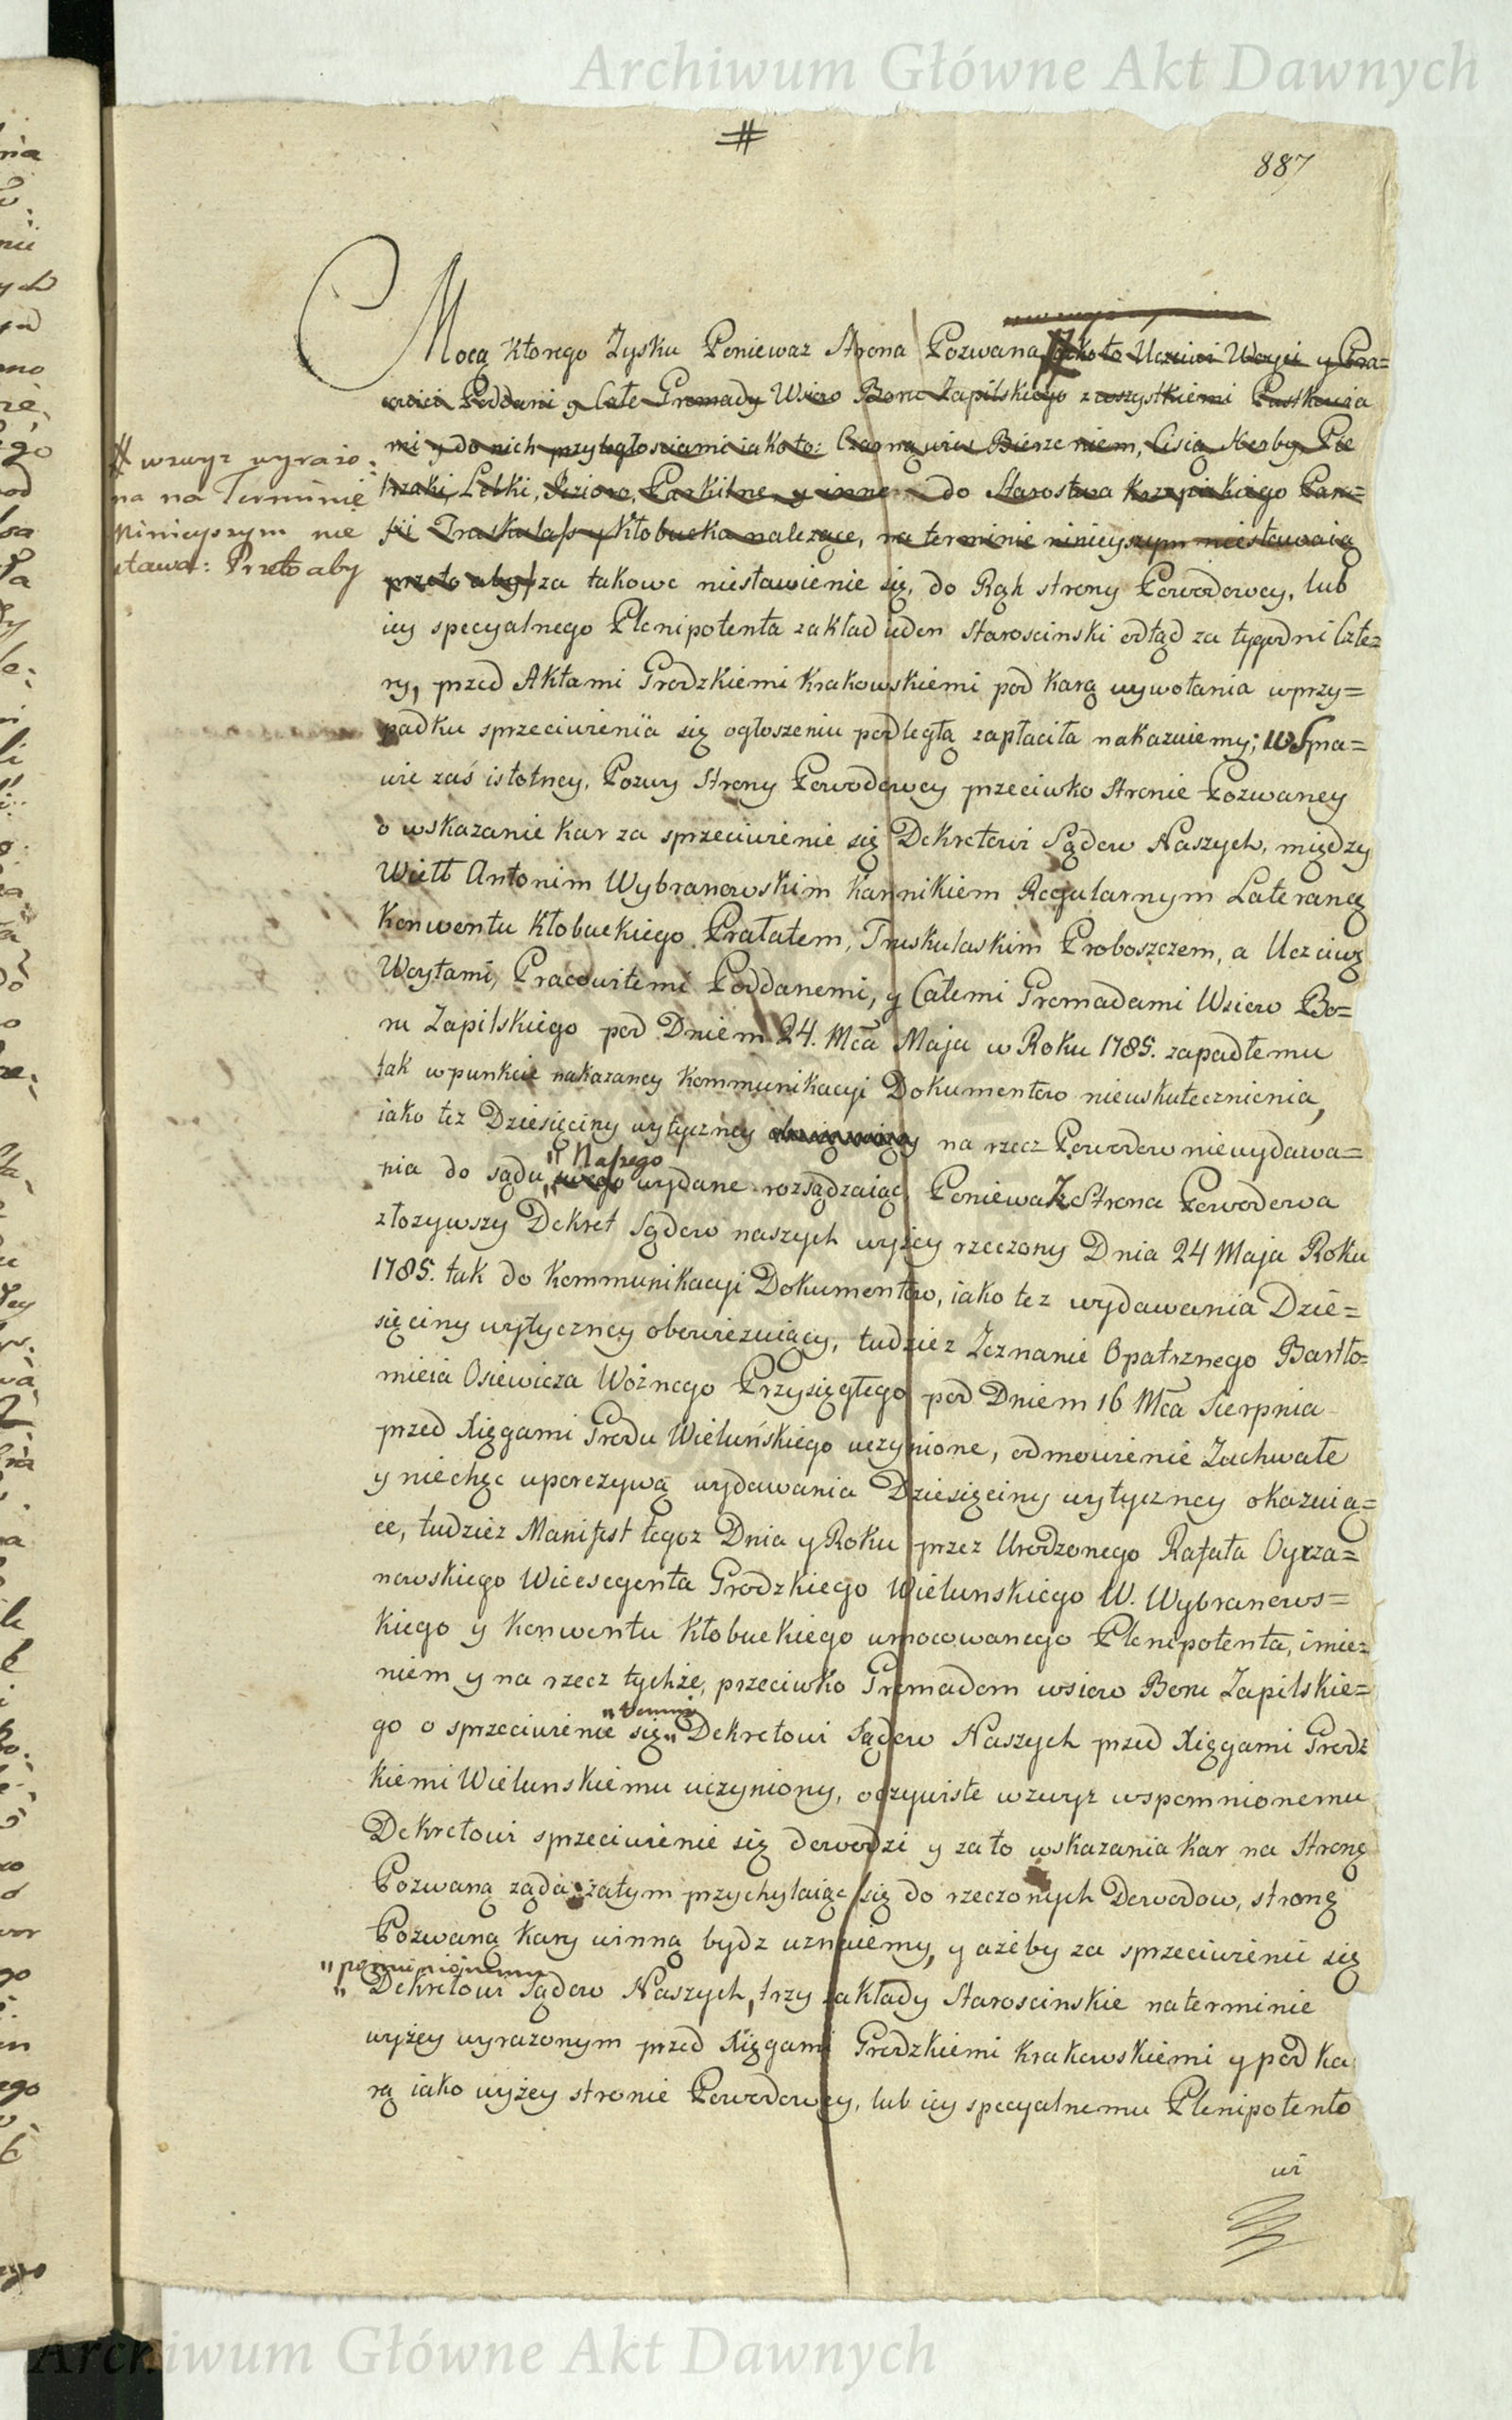 Archiwum Główne Akt Dawnych
#
887
Mocą ktorego Zysku Poniewaz Strona Pozwana # iakoto Uczciwi Woyci y Pra=
cowici Poddani y Całe Gromady Wsiow Boru Zapilskiego z wszystkiemi Pustkowia
mi y do nich przyległosciami iako to: Czarną wieś Bierzeniem, Cisią Herby, Pie
trzaki, Lebki, Jezioro, Parkitne, y inne do Starostwa Krzepickiego Par=
fii Truskulasy y Kłobucka nalezące, na terminie ninieyszym niestawaią
przeto aby za takowe niestawienie się, do Rąk strony Powodowey, lub
iey specyalnego Plenipotenta zakład ieden Staroscinski odtąd za tygodni Czte=
ry, przed Aktami Grodzkiemi Krakowskiemi pod karą wywołania w przy=
padku sprzeciwienia się ogłoszeniu podległą zapłaciła nakazuiemy; w Spra=
wie zaś istotney, Pozwy Strony Powodowey przeciwko Stronie Pozwaney
o wskazanie kar za sprzeciwienie się Dekretowi Sądow Naszych, między
Wiell Antonim Wybranowskim Kannikiem Regularnym Laterane
Konwentu Kłobuckiego Prałatem, Truskulaskim Proboszczem, a Uczciwe
Woytami, Pracowitemi Poddanemi, y Całemi Gromadami Wsiow Bo=
ru Zapilskiego pod Dniem 24. Mca Maja w Roku 1785. zapadłemu
tak w punkcie nakazaney Kommunikacyi Dokumentow nieuskutecznienia,
iako tez Dziesięciny wytyczney na rzecz Powodow niewydawa=
nia do sądu " Naszego swego wydane rozsądzaiąc, Poniewaz Strona Powodowa
złozywszy Dekret Sądow naszych wyżey rzeczony Dnia 24 Maja Roku
1785. tak do Kommunikacyi Dokumentow, iako tez wydawania Dzie=
sięciny wytyczney obowiezuiący, tudziez Zeznanie Opatrznego Bartło=
mieia Osiewicza Woznego Przysięgłego pod Dniem 16 Mca Sierpnia
przed Xięgami Grodu Wieluńskiego uczynione, odmowienie Zuchwałe
y niechęc uporczywą wydawania Dziesięciny wytyczney okazuią=
ce, tudziez Manifest tegoz Dnia y Roku przez Urodzonego Rafała Oyrza=
nowskiego Wicesegenta Grodzkiego Wielunskiego W. Wybranows=
kiego y Konwentu Kłobuckiego umocowanego Plenipotenta, imie=
niem y na rzecz tychże, przeciwko Gromadom wsiow Boru Zapilskie=
go o sprzeciwienie się Dekretowi Sądow Naszych przed Xięgami Grodz
kiemi Wielunskiemu uczyniony, oczywiste wzwyz wspomnionemu
Dekretowi sprzeciwienie się dowodzi y za to wskazania kar na Stronę
Pozwaną ząda, zatym przychylaiąc się do rzeczonych Dowodow, stronę
Pozwaną kary winną bydz uznaiemy, y ażeby za sprzeciwienie się
" pomienionemu
" Dekretowi Sądow Naszych, trzy zakłady Staroscinskie na terminie
wyżey wyrazonym przed Xięgami Grodzkiemi Krakowskiemi y pod ka
rą iako wyżey stronie Powodowey, lub iey specyalnemu Plenipotento
wi
# wzwyz wyrażo
na na Terminie
ninieyszym nie
stawa: Przeto aby
Archiwum Główne Akt Dawnych